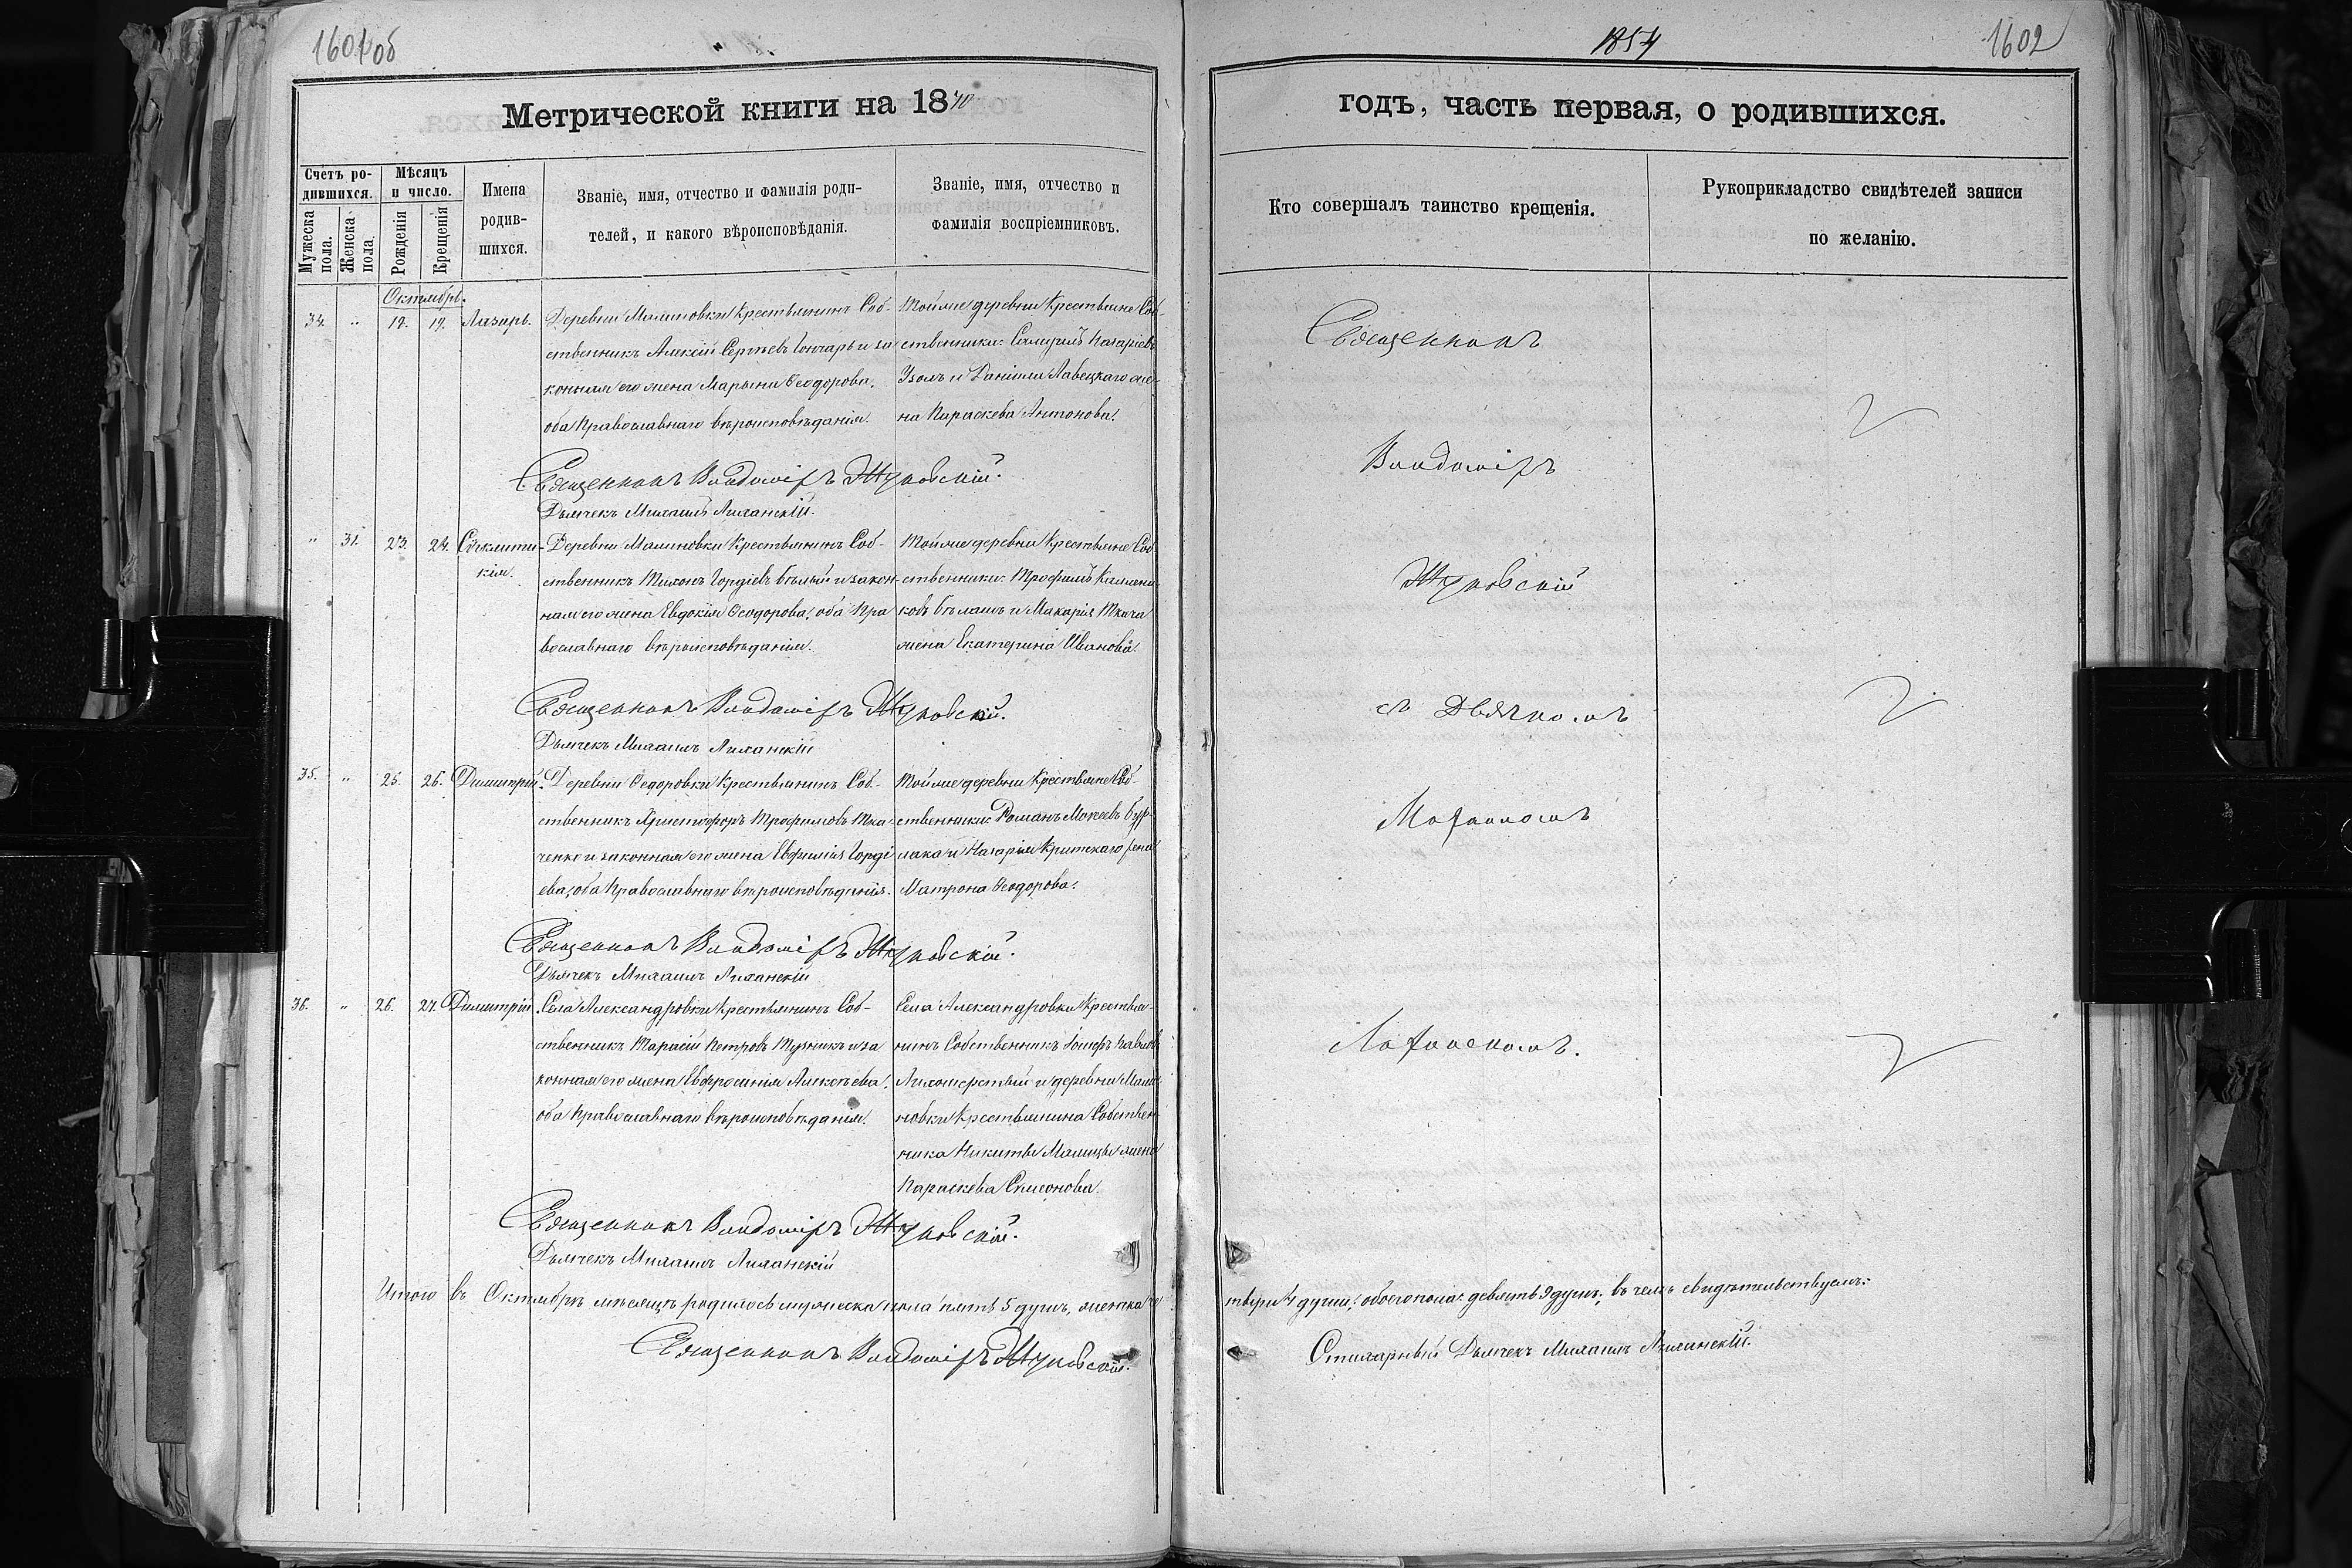 1601об
Метрической книги на 1870
Счетъ ро-
дившихся.
Мѣсяцъ
и число.
Мужеска
пола.
Женска
пола.
Рожденія
Крещенія
Имена
родив-
шихся.
Званіе, имя, отчество и фамилія роди-
телей, и какого вѣроисповѣданія.
Званіе, имя, отчество и
фамилія воспріемниковъ.
Октябрь.
34. " 19. 19. Лазарь.
Деревни Малиновки Крестьянинъ Соб-
ственникъ Алексій Сергѣевъ Гончарь и за
конная его жена Марьяна Ѳеодорова,
оба Православнаго вѣроисповѣданія.
Тойже деревни Крестьяне Соб-
ственники: Самуилъ
и Даніила Лавецкаго же-
на Параскева Антонова.
Священникъ Владиміръ Жуковскій.
Дьячекъ Михаилъ Лиханскій.
" 31. 23. 24. Синклити-
кія.
Деревни Малиновки Крестьянинъ Соб-
ственникъ Тихонъ Гордіевъ Бѣлый и закон-
ная его жена Евдокія Ѳеодорова, оба Пра
вославнаго вѣроисповѣданія.
Тойже деревни Крестьяне Соб
ственники: Трофимъ
Бѣлашъ и Макарія Ткача
жена Екатерина Иванова.
Священникъ Владиміръ Жуковскій.
Дьячекъ Михаилъ Лиханскій
35. " 25. 26. Димитрій.
Деревни Ѳедоровки Крестьянинъ Соб-
ственникъ Христофоръ Трофимовъ Тка-
ченко и законная его жена Евфимія Горді
ева, оба Православнаго вѣроисповѣданія.
Тойже деревни Крестьяне Соб-
ственники: Романъ Мокеевъ Бур-
лака и Назарія Критскаго жена
Матрона Ѳеодорова.
Священникъ Владиміръ Жуковскій.
Дьячекъ Михаилъ Лиханскій
36. " 26. 27. Димитрій.
Села Александровки Крестьянинъ Соб-
ственникъ Тарасій Петровъ и за
конная его жена Евфросинія Алексѣева,
оба Православнаго вѣроисповѣданія.
Села Александровки Крестья-
нинъ Собственникъ
Лихошерстый и деревни Мали
новки Крестьянина Собствен
ника Никиты жена
Параскева Симонова.
Священникъ Владиміръ Жуковскій.
Дьячекъ Михаилъ Лиханскій
Итого въ Октябрѣ мѣсяцѣ родилось мужеска пола пять 5 душъ, женска че
Священникъ Владиміръ Жуковскій.
1854
1602
годъ, часть первая, о родившихся.
Кто совершалъ таинство крещенія.
Рукоприкладство свидѣтелей записи
по желанію.
Священникъ
Владиміръ
Жуковскій
съ Дьячкомъ
Михаиломъ
Лиханскимъ.
тыри 4 души; обоего пола: девять 9 душъ; въ чемъ свидѣтельствуемъ:
Стихарный Дьячекъ Михаилъ Лиханскій.